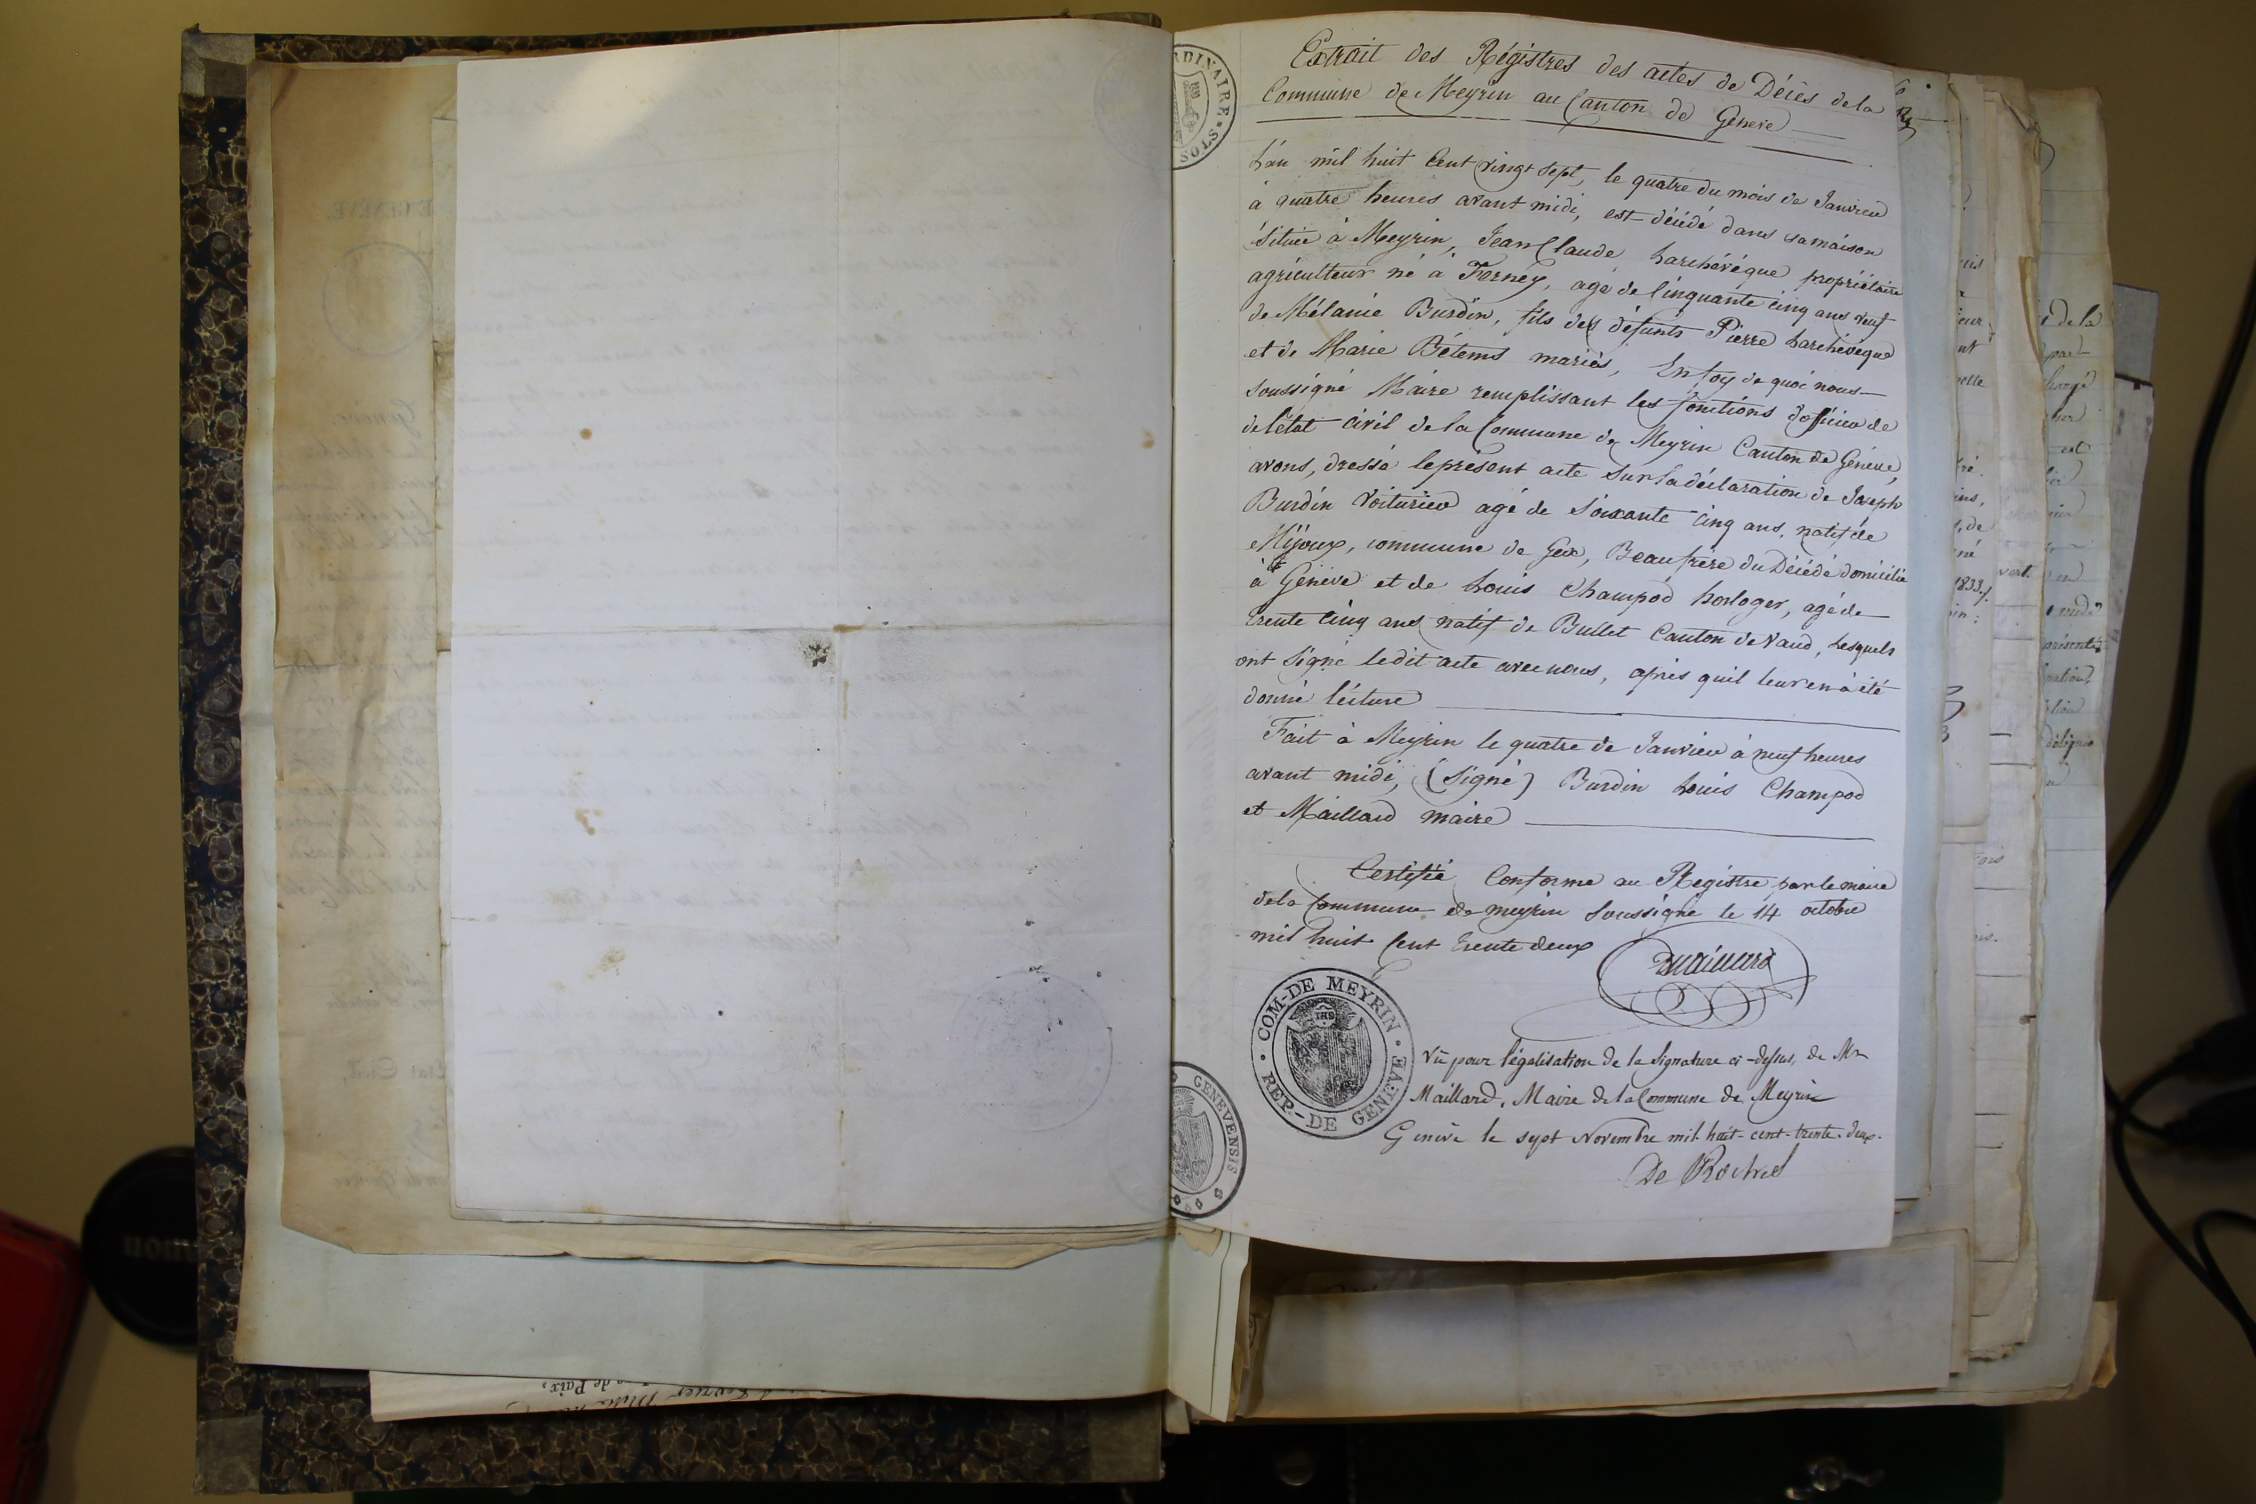 Extrait des Régistres des actes de Décès de la
Commune de Meyrin au Canton de Genève
L'an mil huit Cent vingt sept, le quatre du mois de Janvier
à quatre heures avant midi, est décédé dans sa maison
Située à Meyrin, Jean Claude Larchévéque propriétaire
agriculteur né à Ferney, agé de Cinquante cinq ans veuf
de Mélanie Burdin, fils des défunts Pierre Larchevéque
et de Marie Bétems mariés, En foy de quoi nous
soussigné Maire remplissant les fonctions d'officier de
de l'état civil de la Commune de Meyrin Canton de Genève,
avons, dressé le présent acte Sur la déclaration de Joseph
Burdin Voiturier agé de Soixante Cinq ans, natif de
Mijoux, commune de Gex, Beaufrère du Décédé domicilié
à Genève et de Louis Champod horloger, agé de
trente Cinq ans natif de Bullet Canton de Vaud, Lesquels
ont Signé le dit acte avec nous, après quil leur en à été
donné lécture
Fait à Meyrin le quatre de Janvier à neuf heures
avant midi, (Signé) Burdin Louis Champod
et Maillard maire
Certifié Conforme au Régistre par le maire
de la Commune de meyrin Soussigné le 14 octobre
mil huit Cent trente deux
Maillard
COM-DE MEYRIN
REP-DE GENEVE
Vû pour légalisation de la Signature ci-dessus, de Mr
Maillard, Maire de la Commune de Meyrin
Genève le sept Novembre mil-huit-cent-trente-deux.
GENEVENSIS